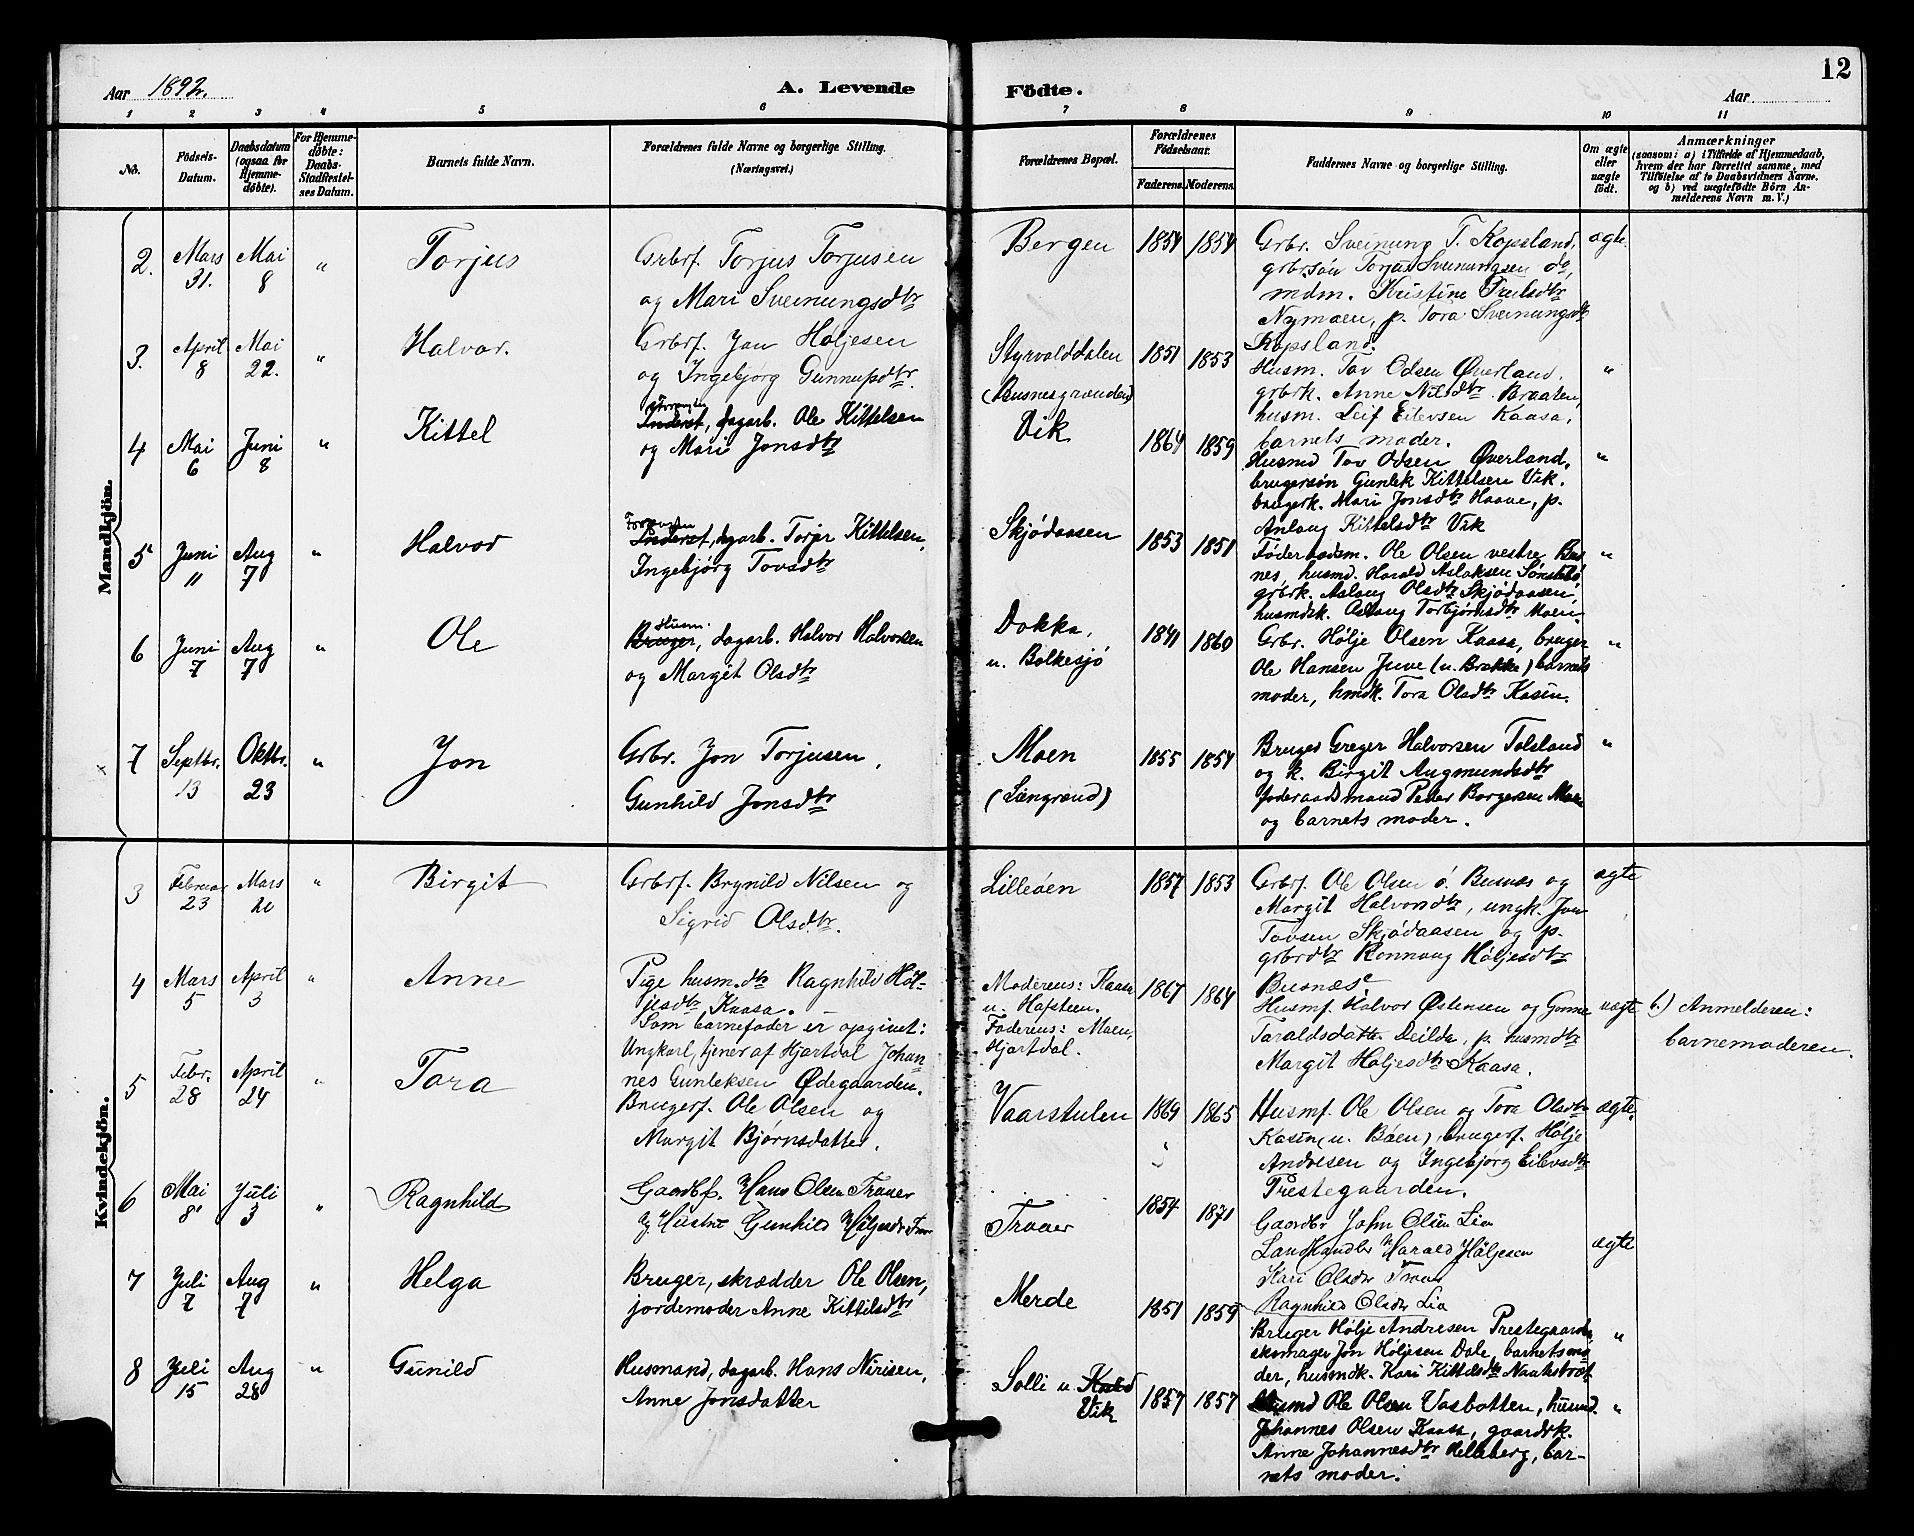 12
Aar 1892.
A. Levende Födte.
Aar
1 2 3 4 5 6 7 8 9 10 11
No.
Födsels-Datum.
Daabsdatum (ogsaa for Hjemmedøbte).
For Hjemmedøbte: Daabs-Stadfæstelses Datum.
Barnets fulde Navn.
Forældrenes fulde Navne og borgerlige Stilling. (Næringsvei.)
Forældrenes Bopæl.
Forældrenes Födselsaar.
Faderens. Moderens.
Faddernes Navne og borgerlige Stilling.
Om ægte eller uægte födt.
Anmærkninger
(saasom: a) i Tilfælde af Hjemmedaab,
hvem der har forrettet samme, med
Tilföielse af to Daabsvidners Navne,
og b) ved uægtefödte Börn An-
melderens Navn m. V.)
Mandkjön.
2. Mars 31. Mai 8 " Torjus
Grbrf. Torjus Torjusen
og Mari Sveinungsdtr
Bergen 1854 1854
Grbr. Sveinung T. Kopsland,
grbrsön Torjus Sveinungsen do,
mdm. Kristine Trulsdtr
Nymoen, p. Tora Sveinungsdtr
Kopsland.
ægte.
3. April 8 Mai 22. " Halvor.
Grbrf. Jon Høljesen
og Ingebjørg Gunnulfsdtr.
Styrvolddalen
(Busnesgrænden)
1851 1853
Husm. Tov Odsen Øverland,
grbrk. Anne Nilsdtr Braaten,
husm. Leif Eilevsen Kaasa,
barnets moder.
"
4 Mai 6 Juni 8 " Kittel
Inderst, dagarb. Ole Kittelsen
og Mari Jonsdtr
Vik 1864 1859
Husmd Tov Odsen Øverland,
brugersön Gunlek Kittelsen Vik.
brugerk. Mari Jonsdtr Haave, p.
Anlaug Kittelsdtr Vik
"
5 Juni 11 Aug 7 " Halvor
Forpagter
Inderst, dagarb. Torjer Kittelsen,
Ingebjörg Tovsdtr
Skjödaasen 1853 1851
Föderaadsm. Ole Olsen vestre Bus-
nes, husmd. Harald Aslaksen Sønstebø
grbrk. Aslaug Olsdtr Skjödaasen,
husmdsk. Aslaug Torbjørnsdtr Moen.
"
6 Juni 7 Aug 7 " Ole
Husm.
Bruger, dagarb. Halvor Halvorsen
og Margit Olsdtr
Dokka,
u. Bolkesjö
1841 1860
Grbr. Hølje Olsen Kaasa, bruger
Ole Hansen Juve (u. Brække) barnets
moder, hmdk. Tora Olsdtr Kasin.
"
7 Septbr. 13 Oktbr. 23 " Jon
Grbr. Jon Torjusen,
Gunhild Jonsdtr
Moen
(Længrænd)
1855 1854
Bruger Greger Halvorsen Tolsland
og k. Birgit Augmundsdtr
foderaadsmand Peder Borgersen Moen
og barnets moder.
"
Kvindekjön.
3 Februar 23 Mars 20 " Birgit
Grbrf. Brynild Nilsen og
Sigrid Olsdtr.
Lilleöen 1857 1853
Grbrf. Ole Olsen ö. Busnes og
Margit Halvorsdtr, ungk. Jon
Tovsen Skjödaasen og p.
grbrdtr Rønnaug Høljesdtr
Busnes.
ægte
4 Mars 5 April 3 " Anne
Pige husm.dtr Ragnhild Høl-
jesdtr Kaasa.
Som barnefader er opgivet:
Ungkarl, tjener af Hjartdal Johan-
nes Gunleksen Ødegaarden.
Moderens: Kaasa
u. Hafsteen.
Faderens: Moen,
Hjartdal.
1867 1864
Husmf. Halvor Østensen og Gunne
Taraldsdatter Deilda, p. husmdtr
Margit Høljesdtr Kaasa.
uægte
b.) Anmelderen:
barnemoderen.
5 Febr. 28 April 24 " Tora
Brugerf. Ole Olsen og
Margit Bjørnsdatter.
Vaarstulen 1869 1865
Husmf. Ole Olsen og Tora Olsdtr
Kasin (u. Böen), brugerf. Hølje
Andresen og Ingebjørg Eilevsdtr
Prestegaarden.
ægte.
6 Mai 8 Juli 3 " Ragnhild
Gaardbf. Hans Olsen Traaer
og Hustru Gunhild Høljesdr
Traaer 1854 1871
Gaardbr John Olsen Lia
Landhandler Harald Høljesen
Kari Olsdr Traaer
Ragnhild Olsdr Lia
ægte
7 Juli 7 Aug 7 " Helga
Bruger, skrædder Ole Olsen,
jordemoder Anne Kittilsdtr
Merde 1851 1859
Bruger Hølje Andresen Prestegaarden,
skomager Jon Høljesen Dale, barnets mo-
der, husmdk. Kari Kittilsdtr
"
8 Juli 15 Aug 28 " Gunild
Husmand, dagarb. Hans Nirisen,
Anne Jonsdatter
Solli u
Vik
1857 1857
Husmd Ole Olsen Vasbotten, husmd.
Johannes Olsen Kaasa, gaardsk.
Anne Johannesdtr Helleberg, bar-
nets moder.
"